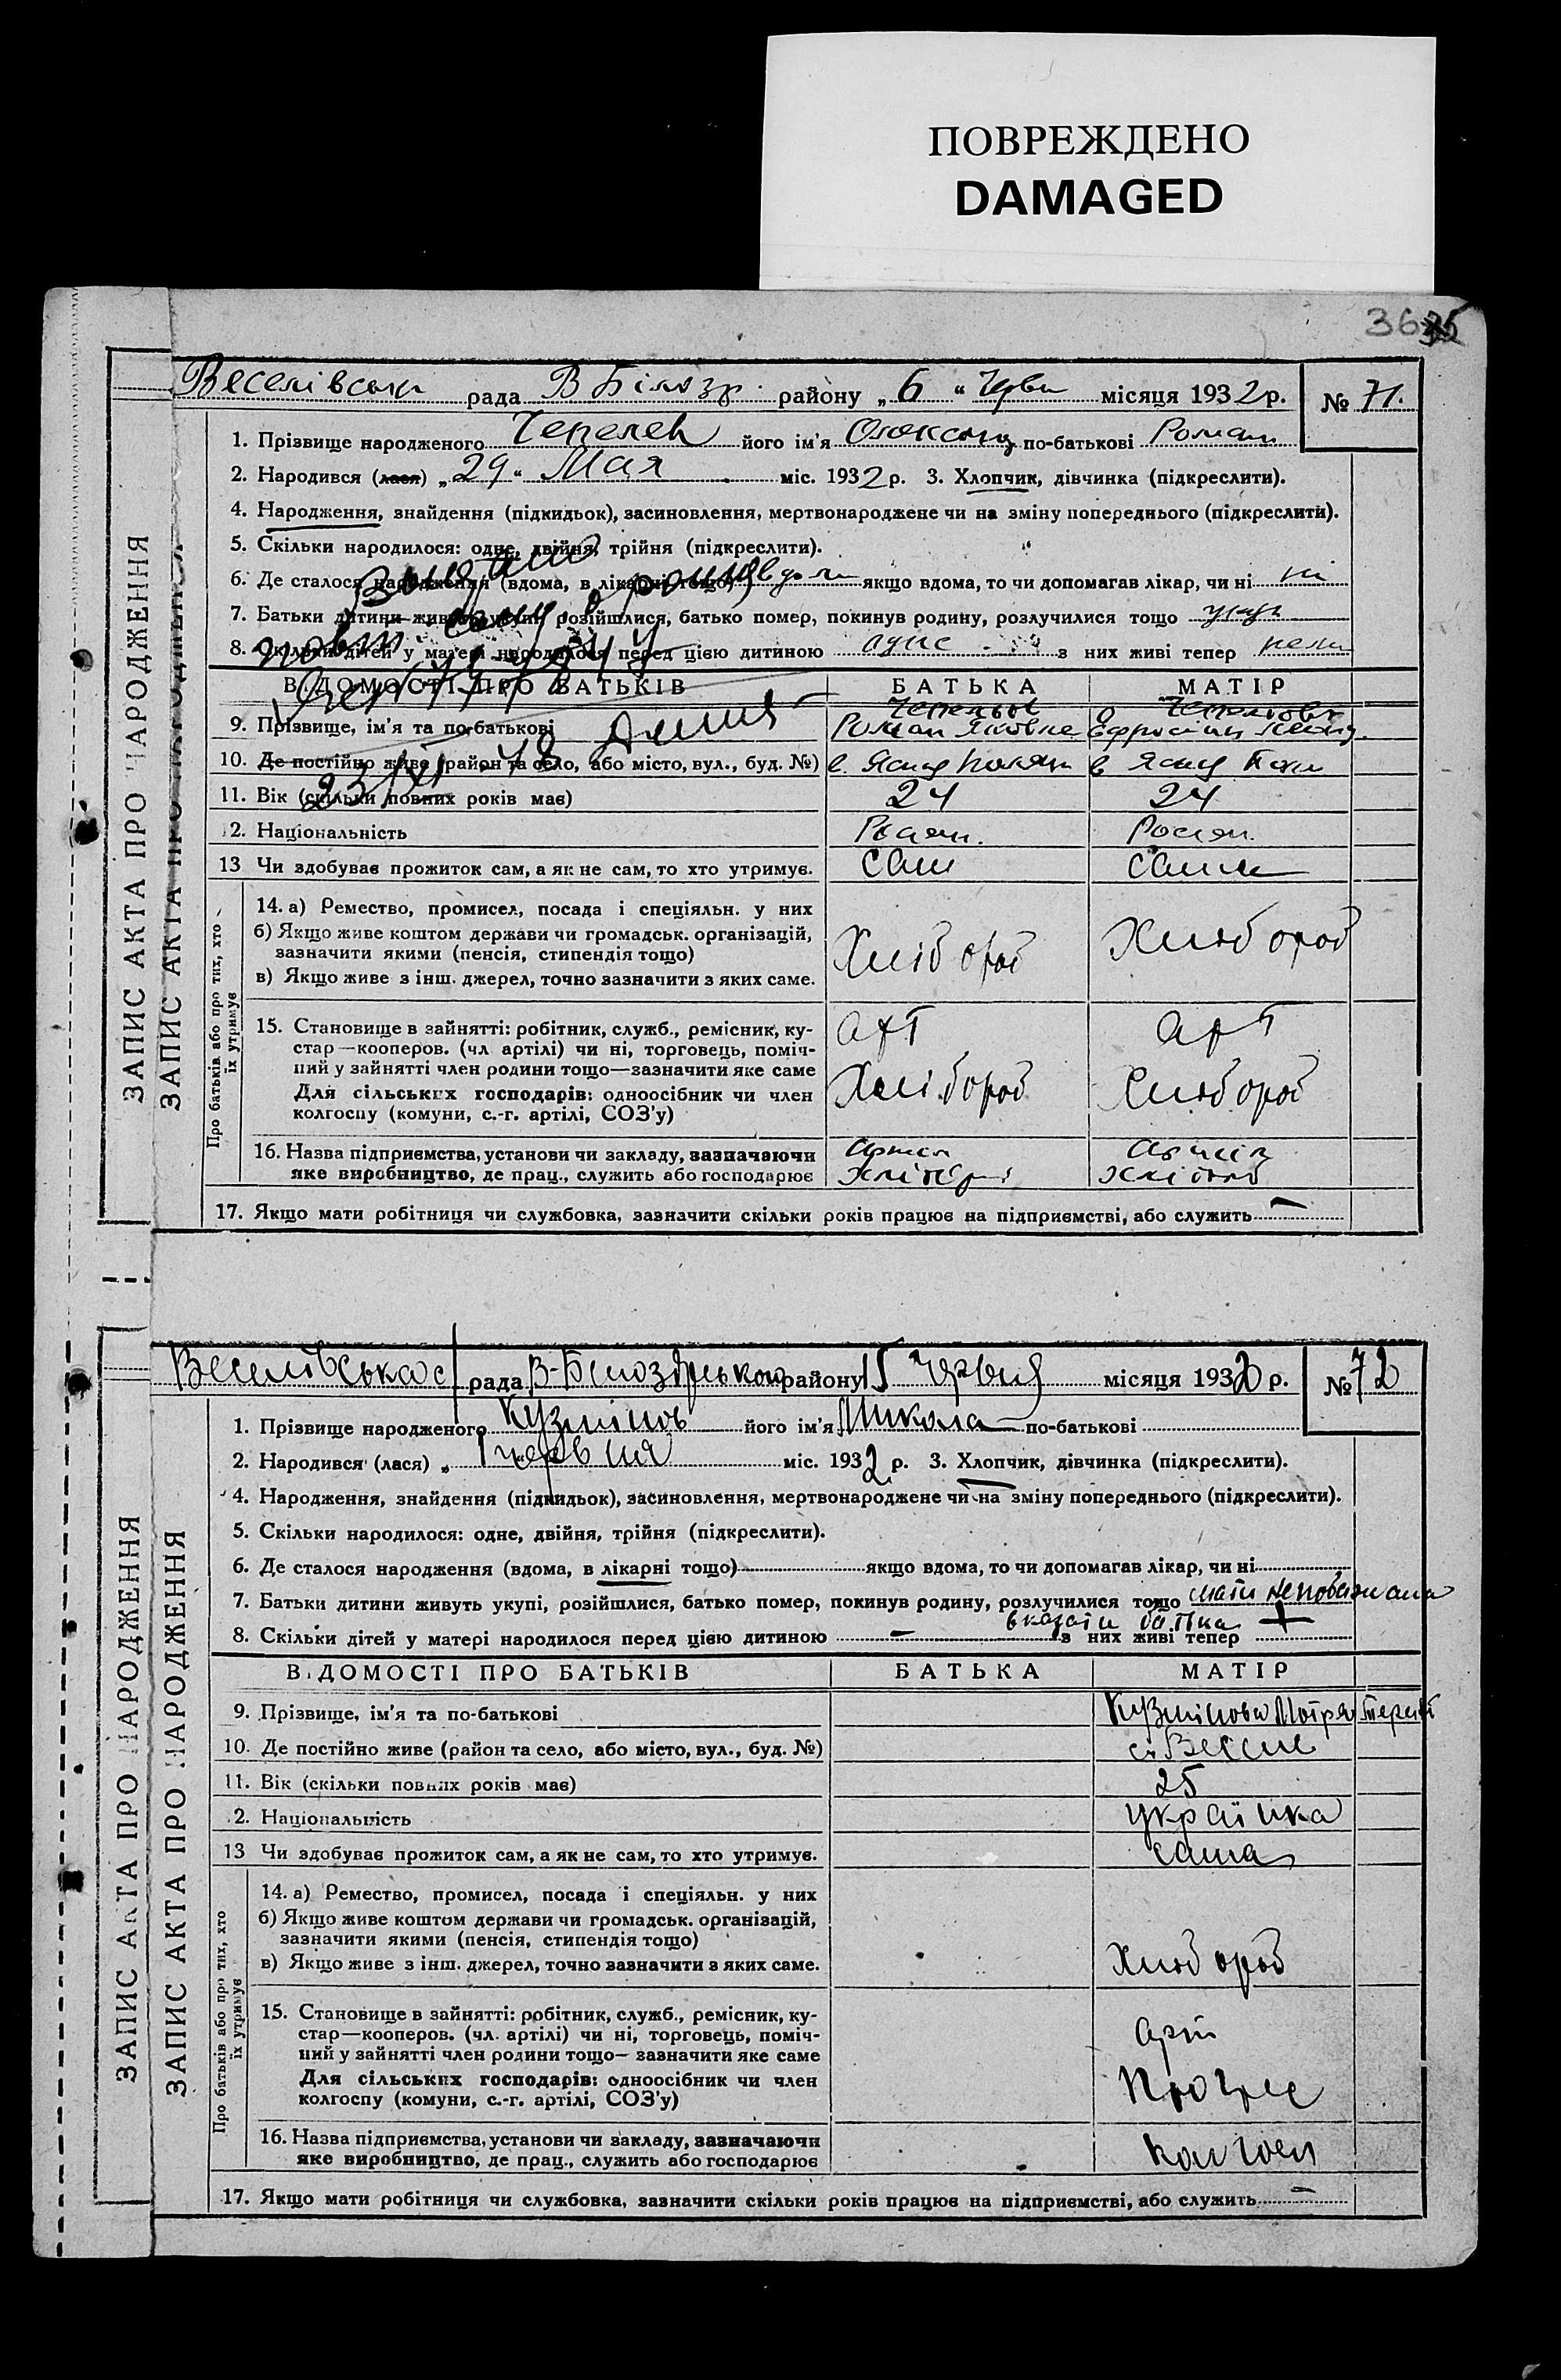 ПОВРЕЖДЕНО
DAMAGED
36
Веселівська рада В Білозр. району „6“ Черв місяця 1932 р. № 71.
1. Прізвище народженого Чепелев його ім'я Олександ по-батькові Роман
2. Народився (лася) „29“ Мая міс. 1932 р. 3. Хлопчик, дівчинка (підкреслити).
4. Народження, знайдення (підкидьок), засиновлення, мертвонароджене чи на зміну попереднього (підкреслити).
5. Скільки народилося: одне, двійня, трійня (підкреслити).
6. Де сталося народження (вдома, в лікарні тощо) вдома якщо вдома, то чи допомагав лікар, чи ні ні
7. Батьки дитини живуть укупі, розійшлися, батько помер, покинув родину, розлучилися тощо
8. Скільки дітей у матері народилося перед цією дитиною одне з них живі тепер
Видано повт.
23/XI 48
ВІДОМОСТІ ПРО БАТЬКІВ БАТЬКА МАТІР
9. Прізвище, ім'я та по-батькові Роман
10. Де постійно живе (район та село, або місто, вул., буд. №)
11. Вік (скільки повних років має) 24 24
12. Національність Росіян. Росіян.
13 Чи здобуває прожиток сам, а як не сам, то хто утримує. Сам сама
Про батьків або про тих, хто їх утримує
14. а) Ремество, промисел, посада і спеціяльн. у них
б) Якщо живе коштом держави чи громадськ. організацій,
зазначити якими (пенсія, стипендія тощо) Хлібороб Хлібороб
в) Якщо живе з інш. джерел, точно зазначити з яких саме.
15. Становище в зайнятті: робітник, служб., ремісник, ку- арт арт
стар—кооперов. (чл артілі) чи ні, торговець, поміч-
ний у зайнятті член родини тощо—зазначити яке саме
Для сільських господарів: одноосібник чи член Хлібороб Хлібороб
колгоспу (комуни, с.-г. артілі, СОЗ'у)
16. Назва підприємства, установи чи закладу, зазначаючи
яке виробництво, де прац., служить або господарює
17. Якщо мати робітниця чи службовка, зазначити скільки років працює на підприємстві, або служить —
ЗАПИС АКТА ПРО НАРОДЖЕННЯ
ЗАПИС АКТА ПРО НАРОДЖЕННЯ
Веселівська с/рада В-Білозірського району 15 червня місяця 1932 р. № 72
1. Прізвище народженого Кузмінов його ім'я Микола по-батькові
2. Народився (лася) „1 червня міс. 1932 р. 3. Хлопчик, дівчинка (підкреслити).
4. Народження, знайдення (підкидьок), засиновлення, мертвонароджене чи на зміну попереднього (підкреслити).
5. Скільки народилося: одне, двійня, трійня (підкреслити).
6. Де сталося народження (вдома, в лікарні тощо) якщо вдома, то чи допомагав лікар, чи ні
7. Батьки дитини живуть укупі, розійшлися, батько помер, покинув родину, розлучилися тощо мати непобажала
вказати батька +
8. Скільки дітей у матері народилося перед цією дитиною — з них живі тепер
ВІДОМОСТІ ПРО БАТЬКІВ БАТЬКА МАТІР
9. Прізвище, ім'я та по-батькові Кузмінова Мотря
10. Де постійно живе (район та село, або місто, вул., буд. №) с. Веселе
11. Вік (скільки повних років має) 25
12. Національність українка
13 Чи здобуває прожиток сам, а як не сам, то хто утримує. сама
Про батьків або про тих, хто їх утримує
14. а) Ремество, промисел, посада і спеціяльн. у них
б) Якщо живе коштом держави чи громадськ. організацій,
зазначити якими (пенсія, стипендія тощо)
в) Якщо живе з інш. джерел, точно зазначити з яких саме. Хлібороб
15. Становище в зайнятті: робітник, служб., ремісник, ку-
стар—кооперов. (чл. артілі) чи ні, торговець, поміч- арт
ний у зайнятті член родини тощо— зазначити яке саме
Для сільських господарів: одноосібник чи член
колгоспу (комуни, с.-г. артілі, СОЗ'у)
16. Назва підприємства, установи чи закладу, зазначаючи
яке виробництво, де прац., служить або господарює
17. Якщо мати робітниця чи службовка, зазначити скільки років працює на підприємстві, або служить —
ЗАПИС АКТА ПРО НАРОДЖЕННЯ
ЗАПИС АКТА ПРО НАРОДЖЕННЯ